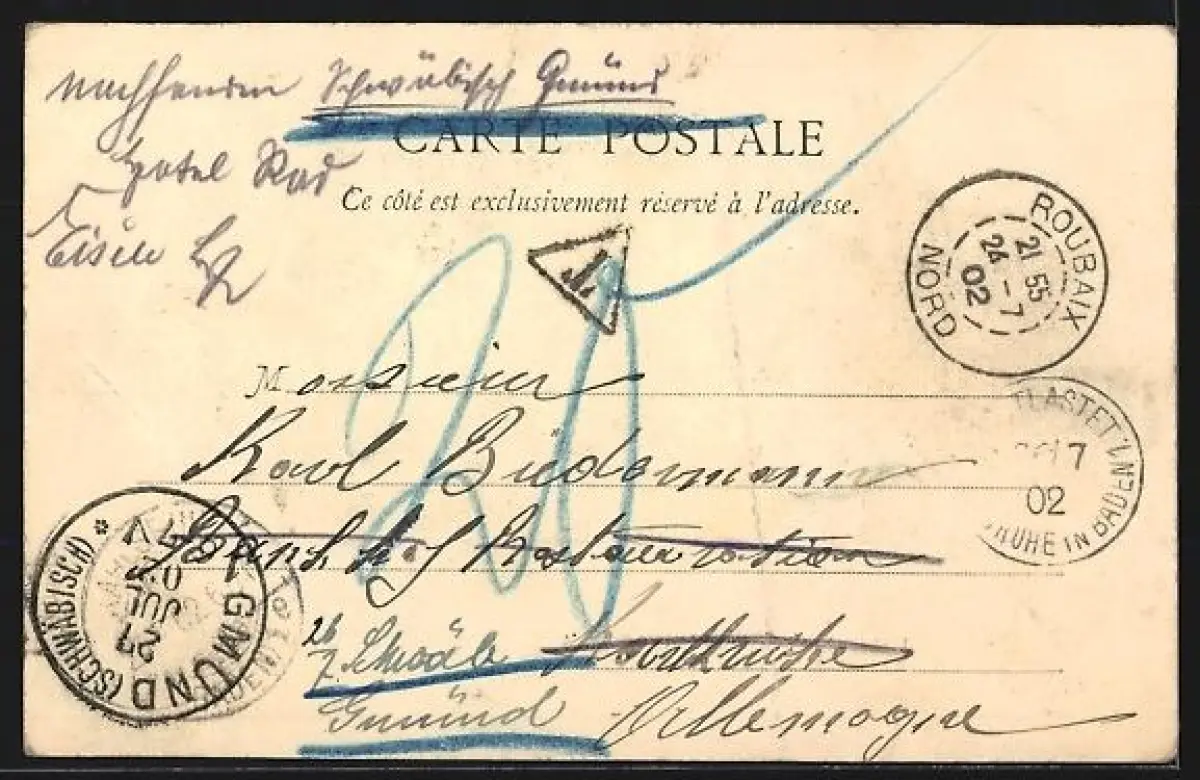 nachsenden Schwäbisch Gmünd
CARTE POSTALE
Hotel Rad
Ce côté est exclusivement réservé à l'adresse.
Eisele
T
ROUBAIX
21 55
24 - 7
02
NORD
20
Monsieur
Karl Biedermann
7
02
RUHE IN BADEN
Bahnhof Restauration
* GMÜND (SCHWÄBISCH)
27
JUL
02
26/7 Schwäb Karlsruhe
Gmünd Allemagne